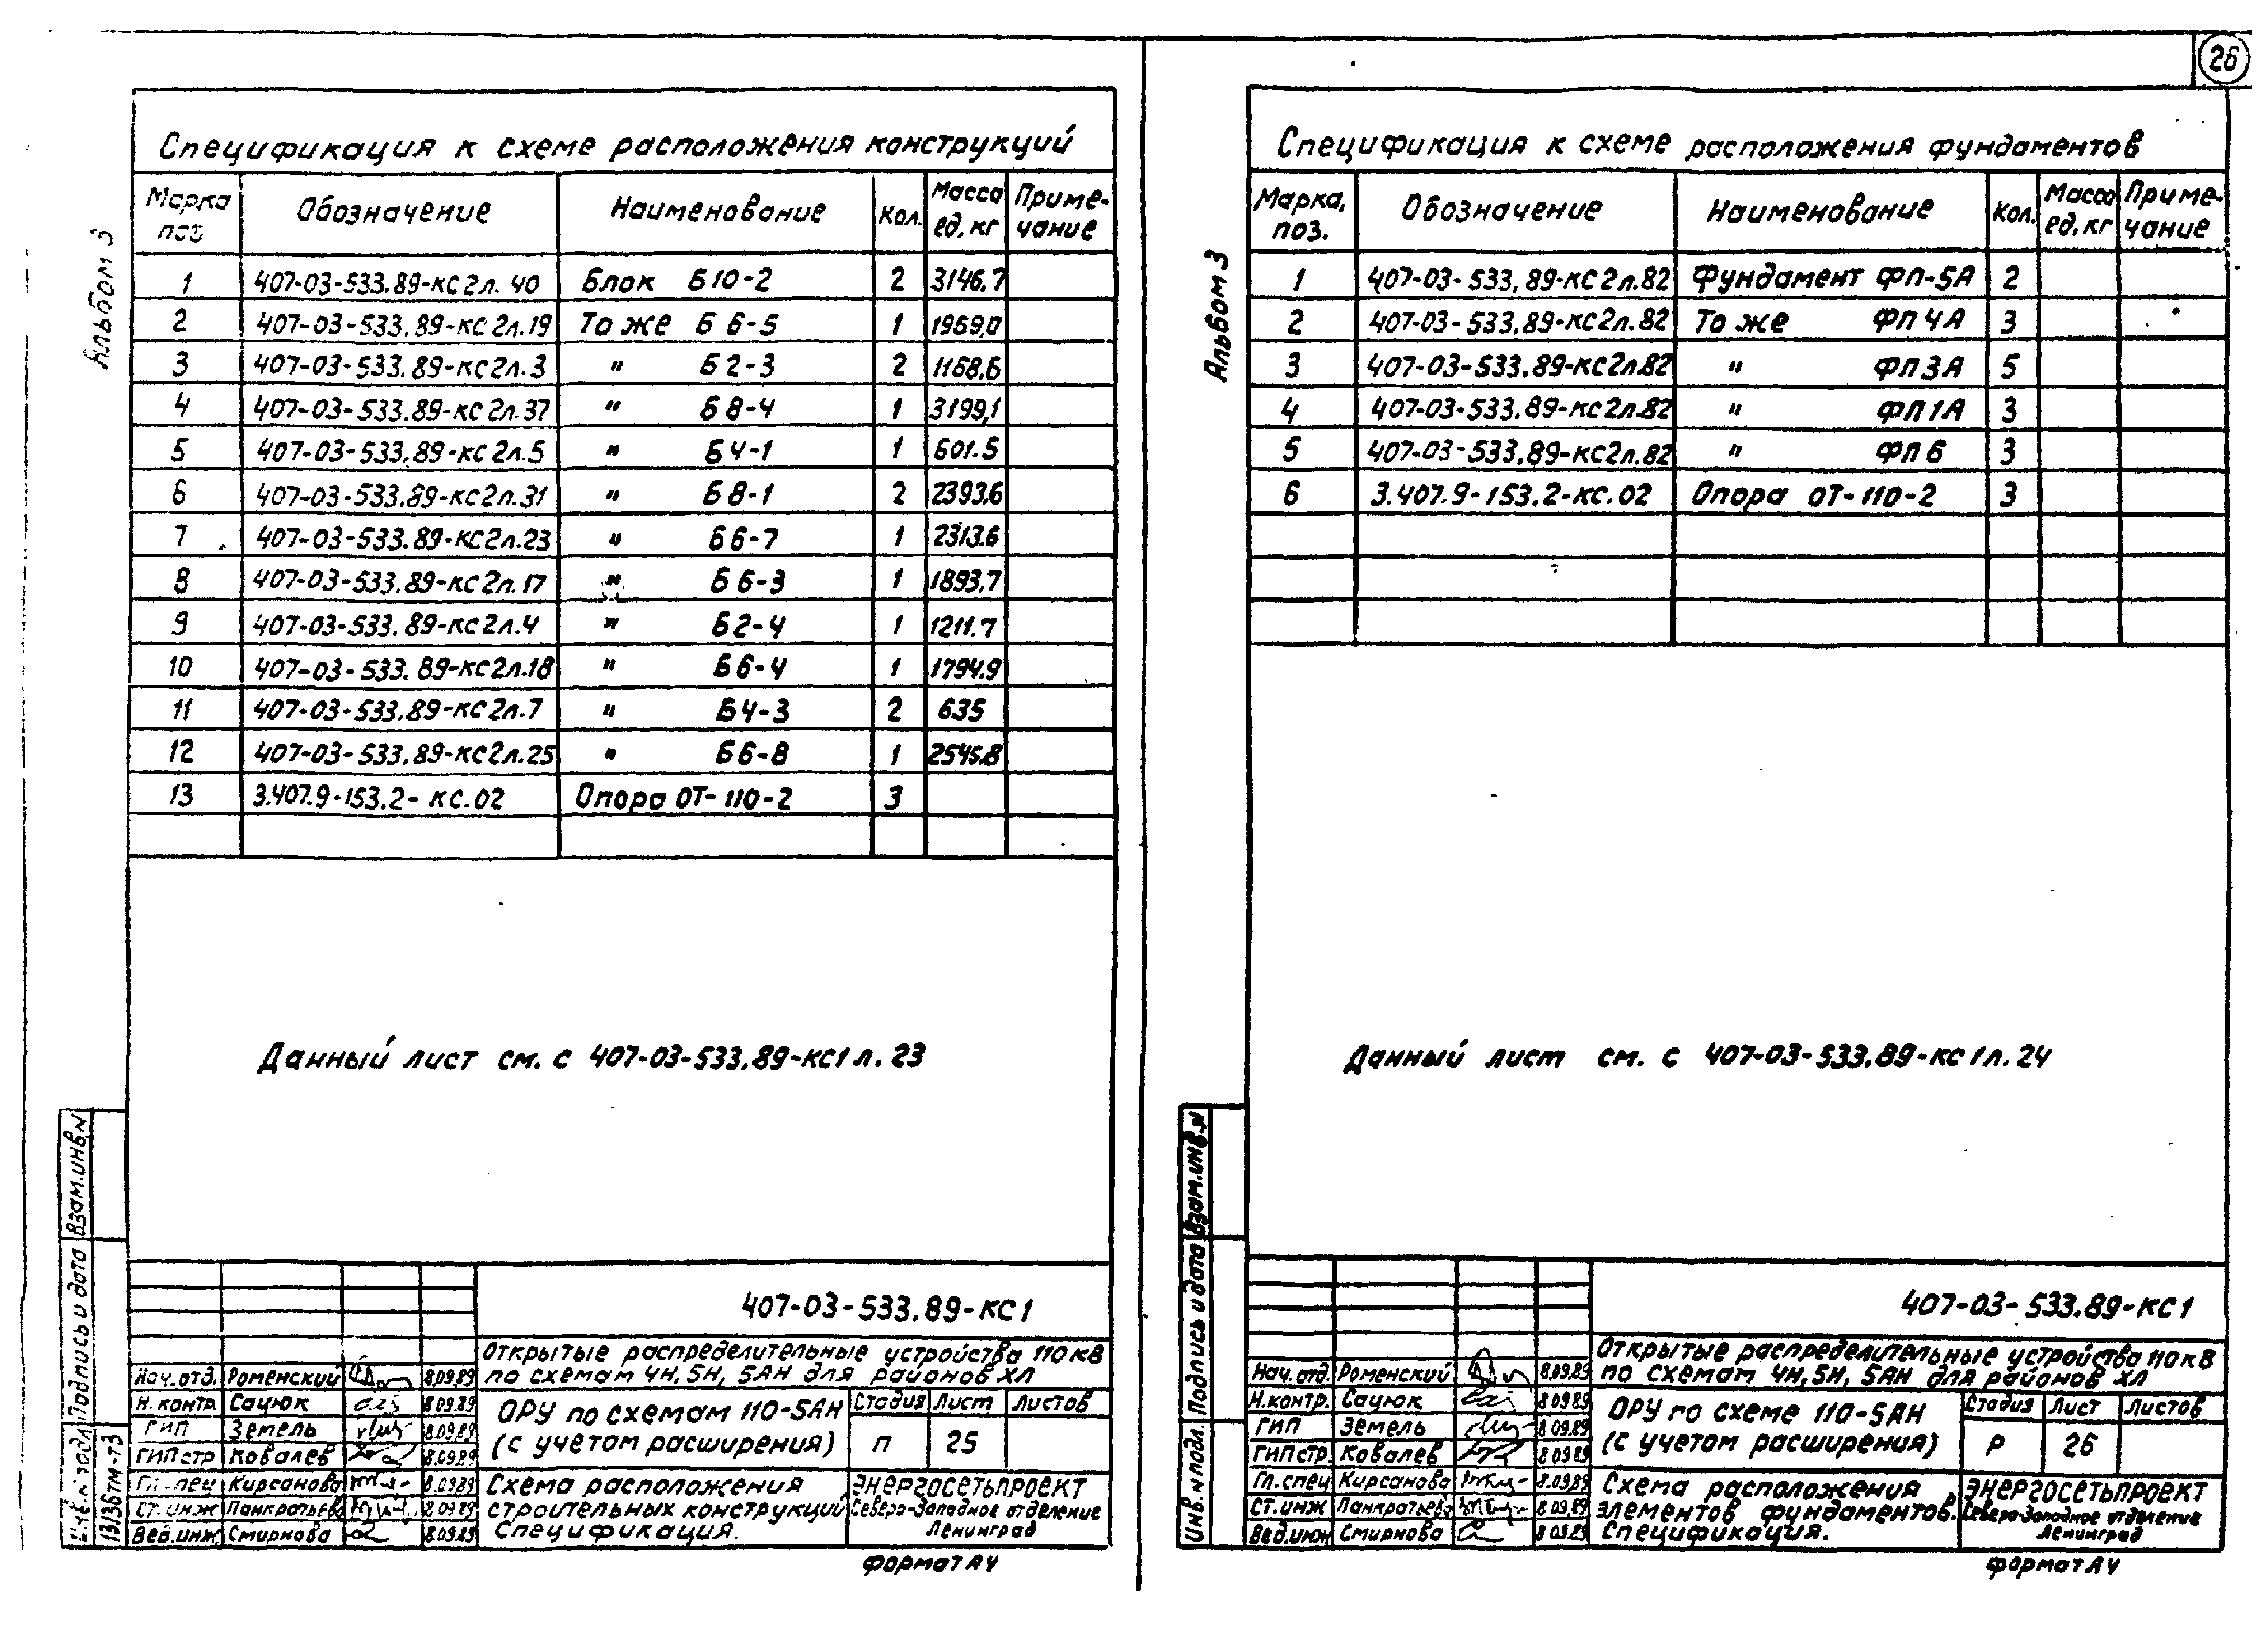 26
Альбом 3
Спецификация к схеме расположения конструкций
Марка поз Обозначение Наименование Кол. Масса ед. кг Примечание
1 407-03-533.89-КС2л.40 Блок Б10-2 2 3146,7
2 407-03-533.89-КС2л.19 То же Б6-5 1 1969,0
3 407-03-533.89-КС2л.3 " Б2-3 2 1168.6
4 407-03-533.89-КС2л.37 " Б8-4 1 3199,1
5 407-03-533.89-КС2л.5 " Б4-1 1 601.5
6 407-03-533.89-КС2л.31 " Б8-1 2 2393.6
7 407-03-533.89-КС2л.23 " Б6-7 1 2313.6
8 407-03-533.89-КС2л.17 " Б6-3 1 1893,7
9 407-03-533.89-КС2л.4 " Б2-4 1 1211.7
10 407-03-533.89-КС2л.18 " Б6-4 1 1794.9
11 407-03-533.89-КС2л.7 " Б4-3 2 635
12 407-03-533.89-КС2л.25 " Б6-8 1 2545.8
13 3.407.9-153.2-КС.02 Опора ОТ-110-2 3
Данный лист см. с 407-03-533.89-КС1 л.23
Взам.инв.N
Подпись и дата
Инв.N подл.
13136тм-т3
407-03-533.89-КС1
Открытые распределительные устройства 110кВ
по схемам 4Н, 5Н, 5АН для районов ХЛ
Нач.отд. Роменский 8.09.89
Н.контр. Сацюк 8.09.89
ГИП Земель 8.09.89
ГИПстр Ковалев 8.09.89
Гл.спец Кирсанова 8.09.89
Ст.инж Панкратьева 8.09.89
Вед.инж Смирнова 8.09.89
ОРУ по схемам 110-5АН
(с учетом расширения)
Стадия Лист Листов
П 25
Схема расположения
строительных конструкций
Спецификация.
ЭНЕРГОСЕТЬПРОЕКТ
Северо-Западное отделение
Ленинград
Формат А4
Альбом 3
Спецификация к схеме расположения фундаментов
Марка, поз. Обозначение Наименование Кол. Масса ед. кг Примечание
1 407-03-533.89-КС2л.82 Фундамент ФП-5А 2
2 407-03-533.89-КС2л.82 То же ФП4А 3
3 407-03-533.89-КС2л.82 " ФП3А 5
4 407-03-533.89-КС2л.82 " ФП1А 3
5 407-03-533.89-КС2л.82 " ФП6 3
6 3.407.9-153.2-КС.02 Опора ОТ-110-2 3
Данный лист см. с 407-03-533.89-КС1л.24
Взам.инв.N
Подпись и дата
Инв.N подл.
407-03-533.89-КС1
Открытые распределительные устройства 110кВ
по схемам 4Н, 5Н, 5АН для районов ХЛ
Нач.отд. Роменский 8.09.89
Н.контр. Сацюк 8.09.89
ГИП Земель 8.09.89
ГИПстр. Ковалев 8.09.89
Гл.спец Кирсанова 8.09.89
Ст.инж Панкратьева 8.09.89
Вед.инж Смирнова 8.09.89
ОРУ по схеме 110-5АН
(с учетом расширения)
Стадия Лист Листов
Р 26
Схема расположения
элементов фундаментов.
Спецификация.
ЭНЕРГОСЕТЬПРОЕКТ
Северо-Западное отделение
Ленинград
Формат А4